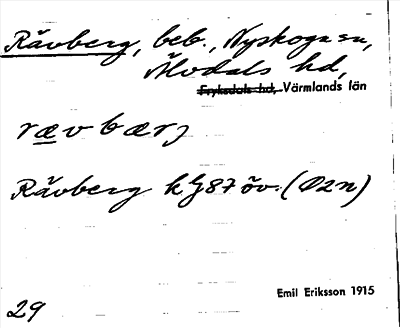 Rävberg, beb., Nyskoga sn,
Älvdals hd,
Fryksdals hd, Värmlands län
rævbærj
Rävberg hG87 öv. (O2n)
Emil Eriksson 1915
29